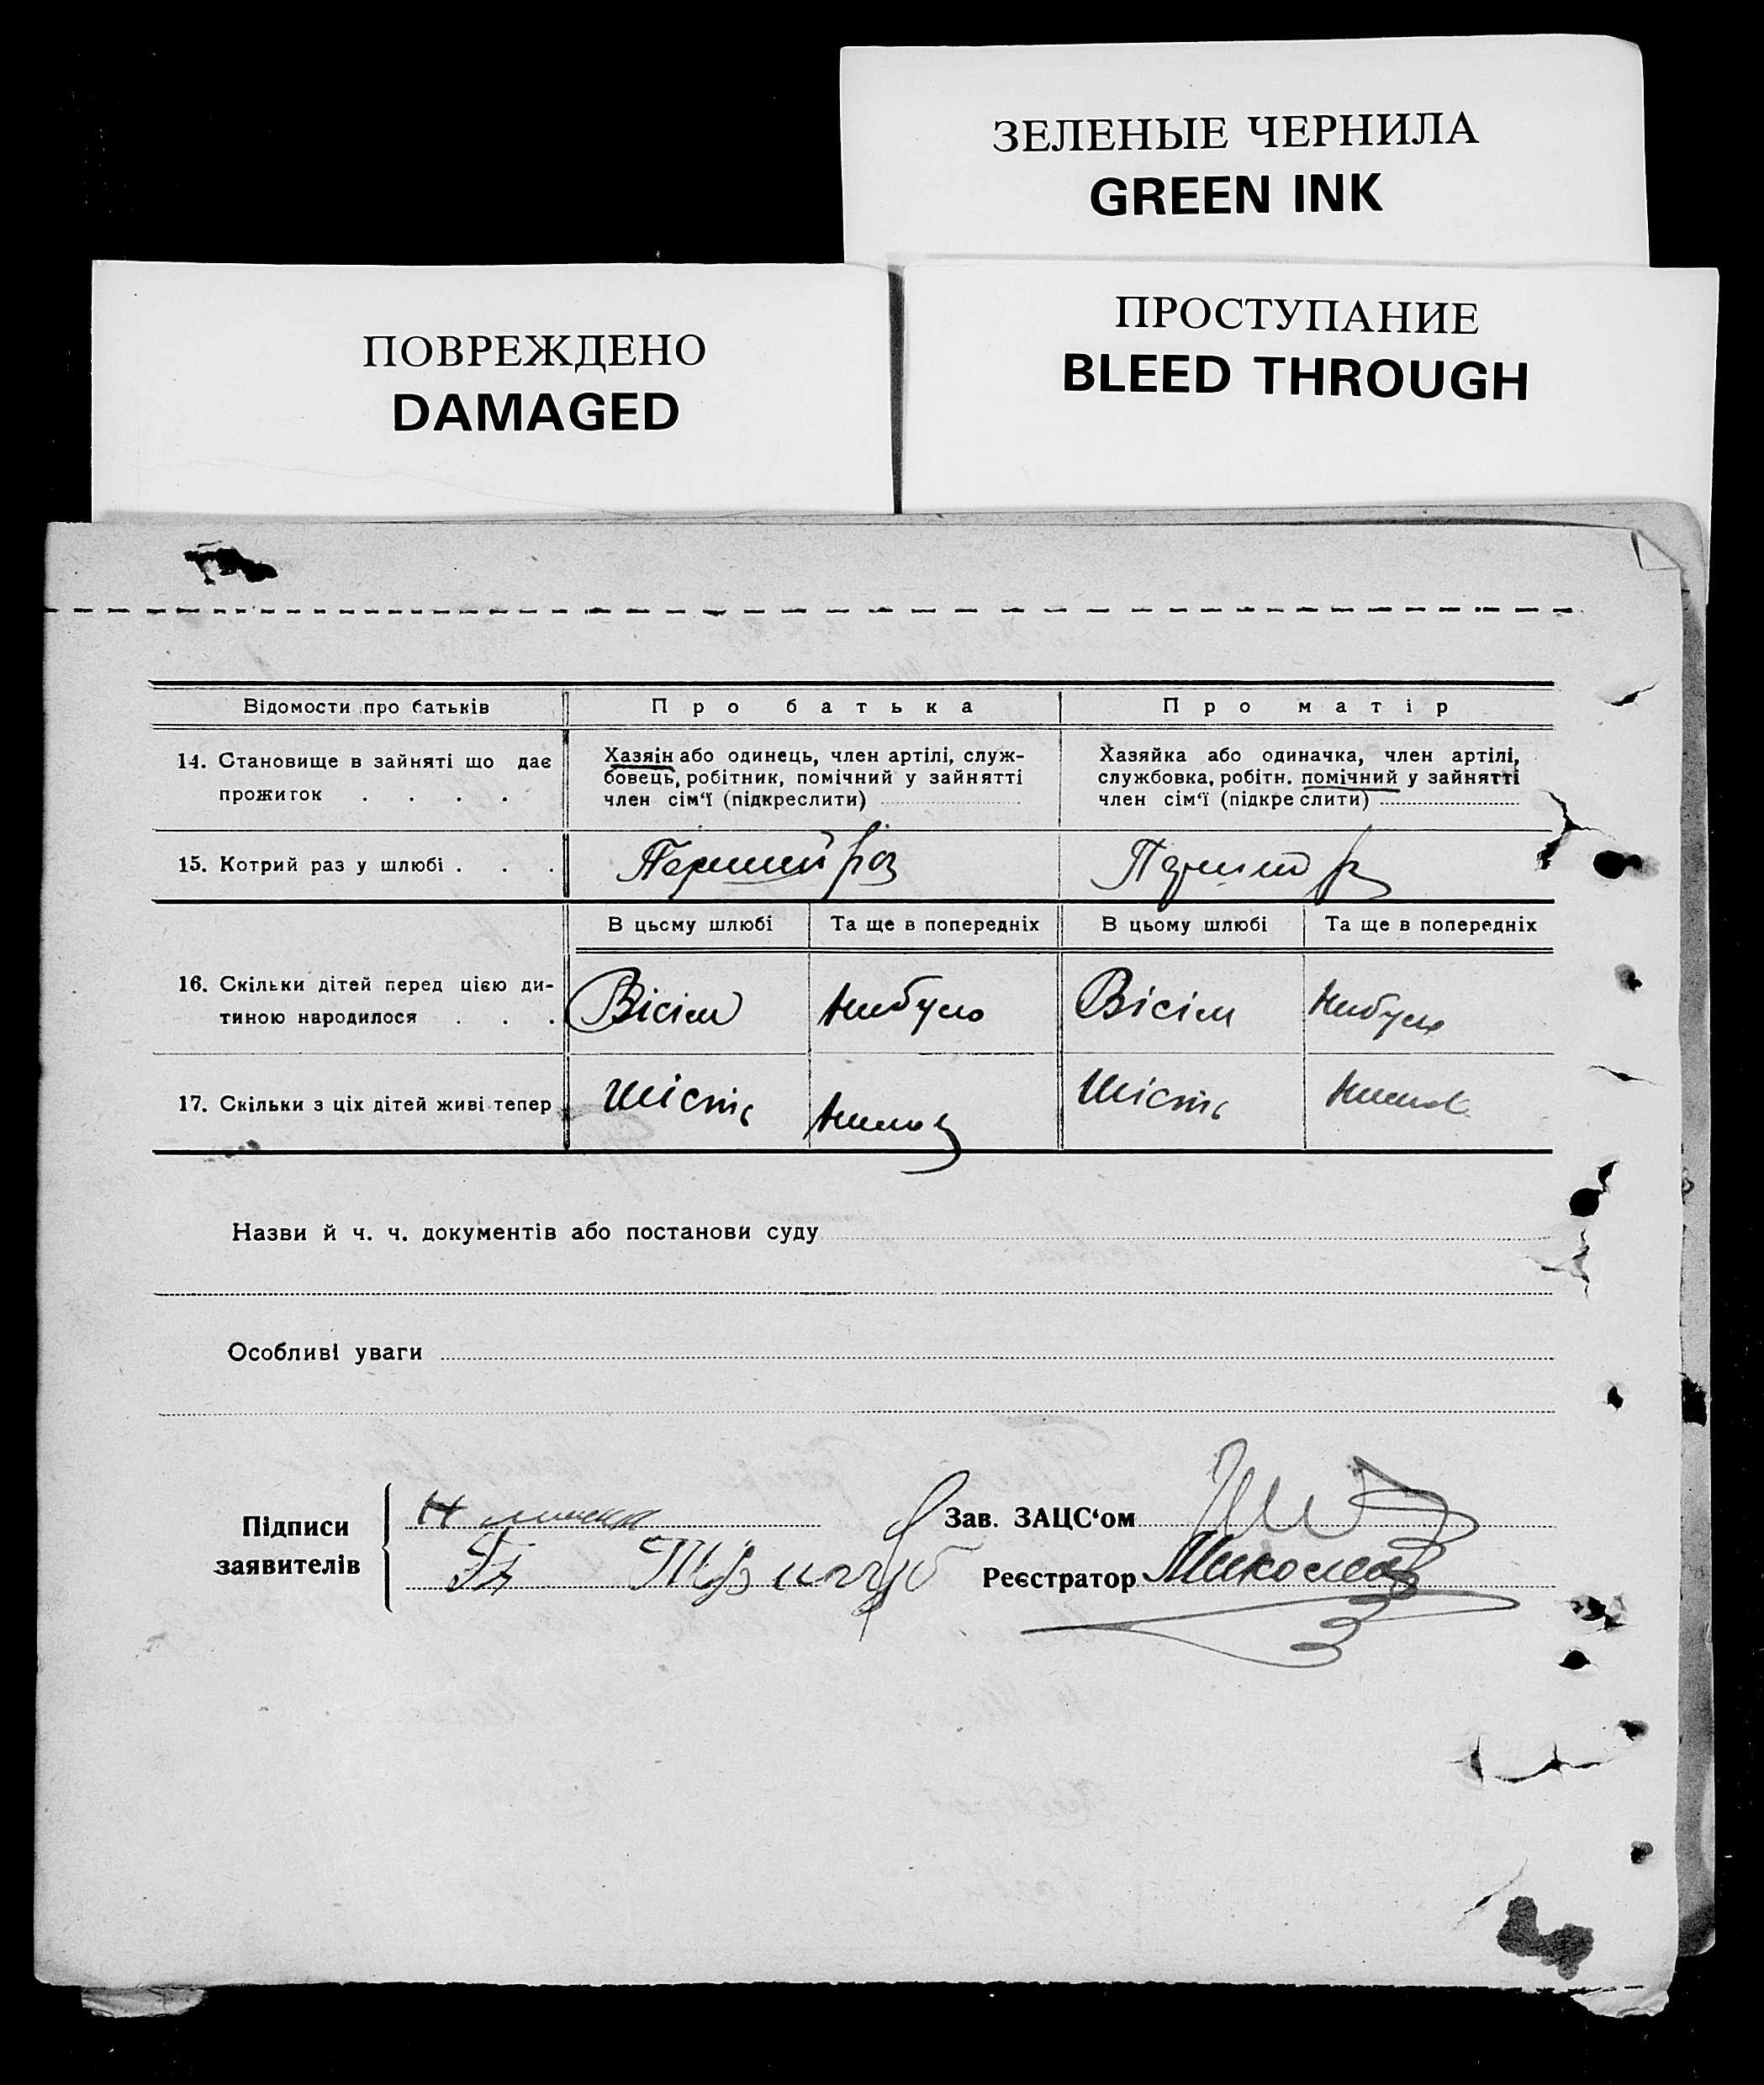 ЗЕЛЕНЫЕ ЧЕРНИЛА
GREEN INK
ПОВРЕЖДЕНО
DAMAGED
ПРОСТУПАНИЕ
BLEED THROUGH
Відомости про батьків
Про батька
Про матір
14. Становище в зайняті що дає
прожиток . . . .
Хазяін або одинець, член артілі, служ-
бовець, робітник, помічний у зайнятті
член сім‘ї (підкреслити)
Хазяйка або одиначка, член артілі,
службовка, робітн. помічний у зайнятті
член сім‘ї (підкреслити)
15. Котрий раз у шлюбі . . .
Перший раз
Перший р
В цьому шлюбі
Та ще в попередніх
В цьому шлюбі
Та ще в попередніх
16. Скільки дітей перед цією ди-
тиною народилося . . .
Вісім
Небуло
Вісім
Небуло
17. Скільки з ціх дітей живі тепер
Шість
Шість
Назви й ч. ч. документів або постанови суду
Особливі уваги
Підписи
заявителів
Зав. ЗАЦС‘ом
Реєстратор